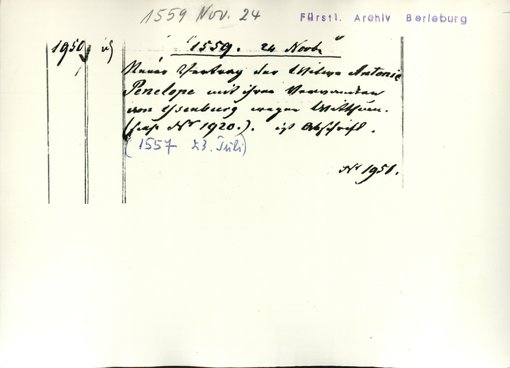 1559 Nov. 24
Fürstl. Archiv Berleburg
1950 v)
"1559. 24 Novbr"
Neuer Vertrag der Witwe Antonie
Penelope mit ihren Verwandten
von Ysenburg wegen Witthum.
(sub No 1920.). ist Abschrift.
(1557 23. Juli)
No 1951.